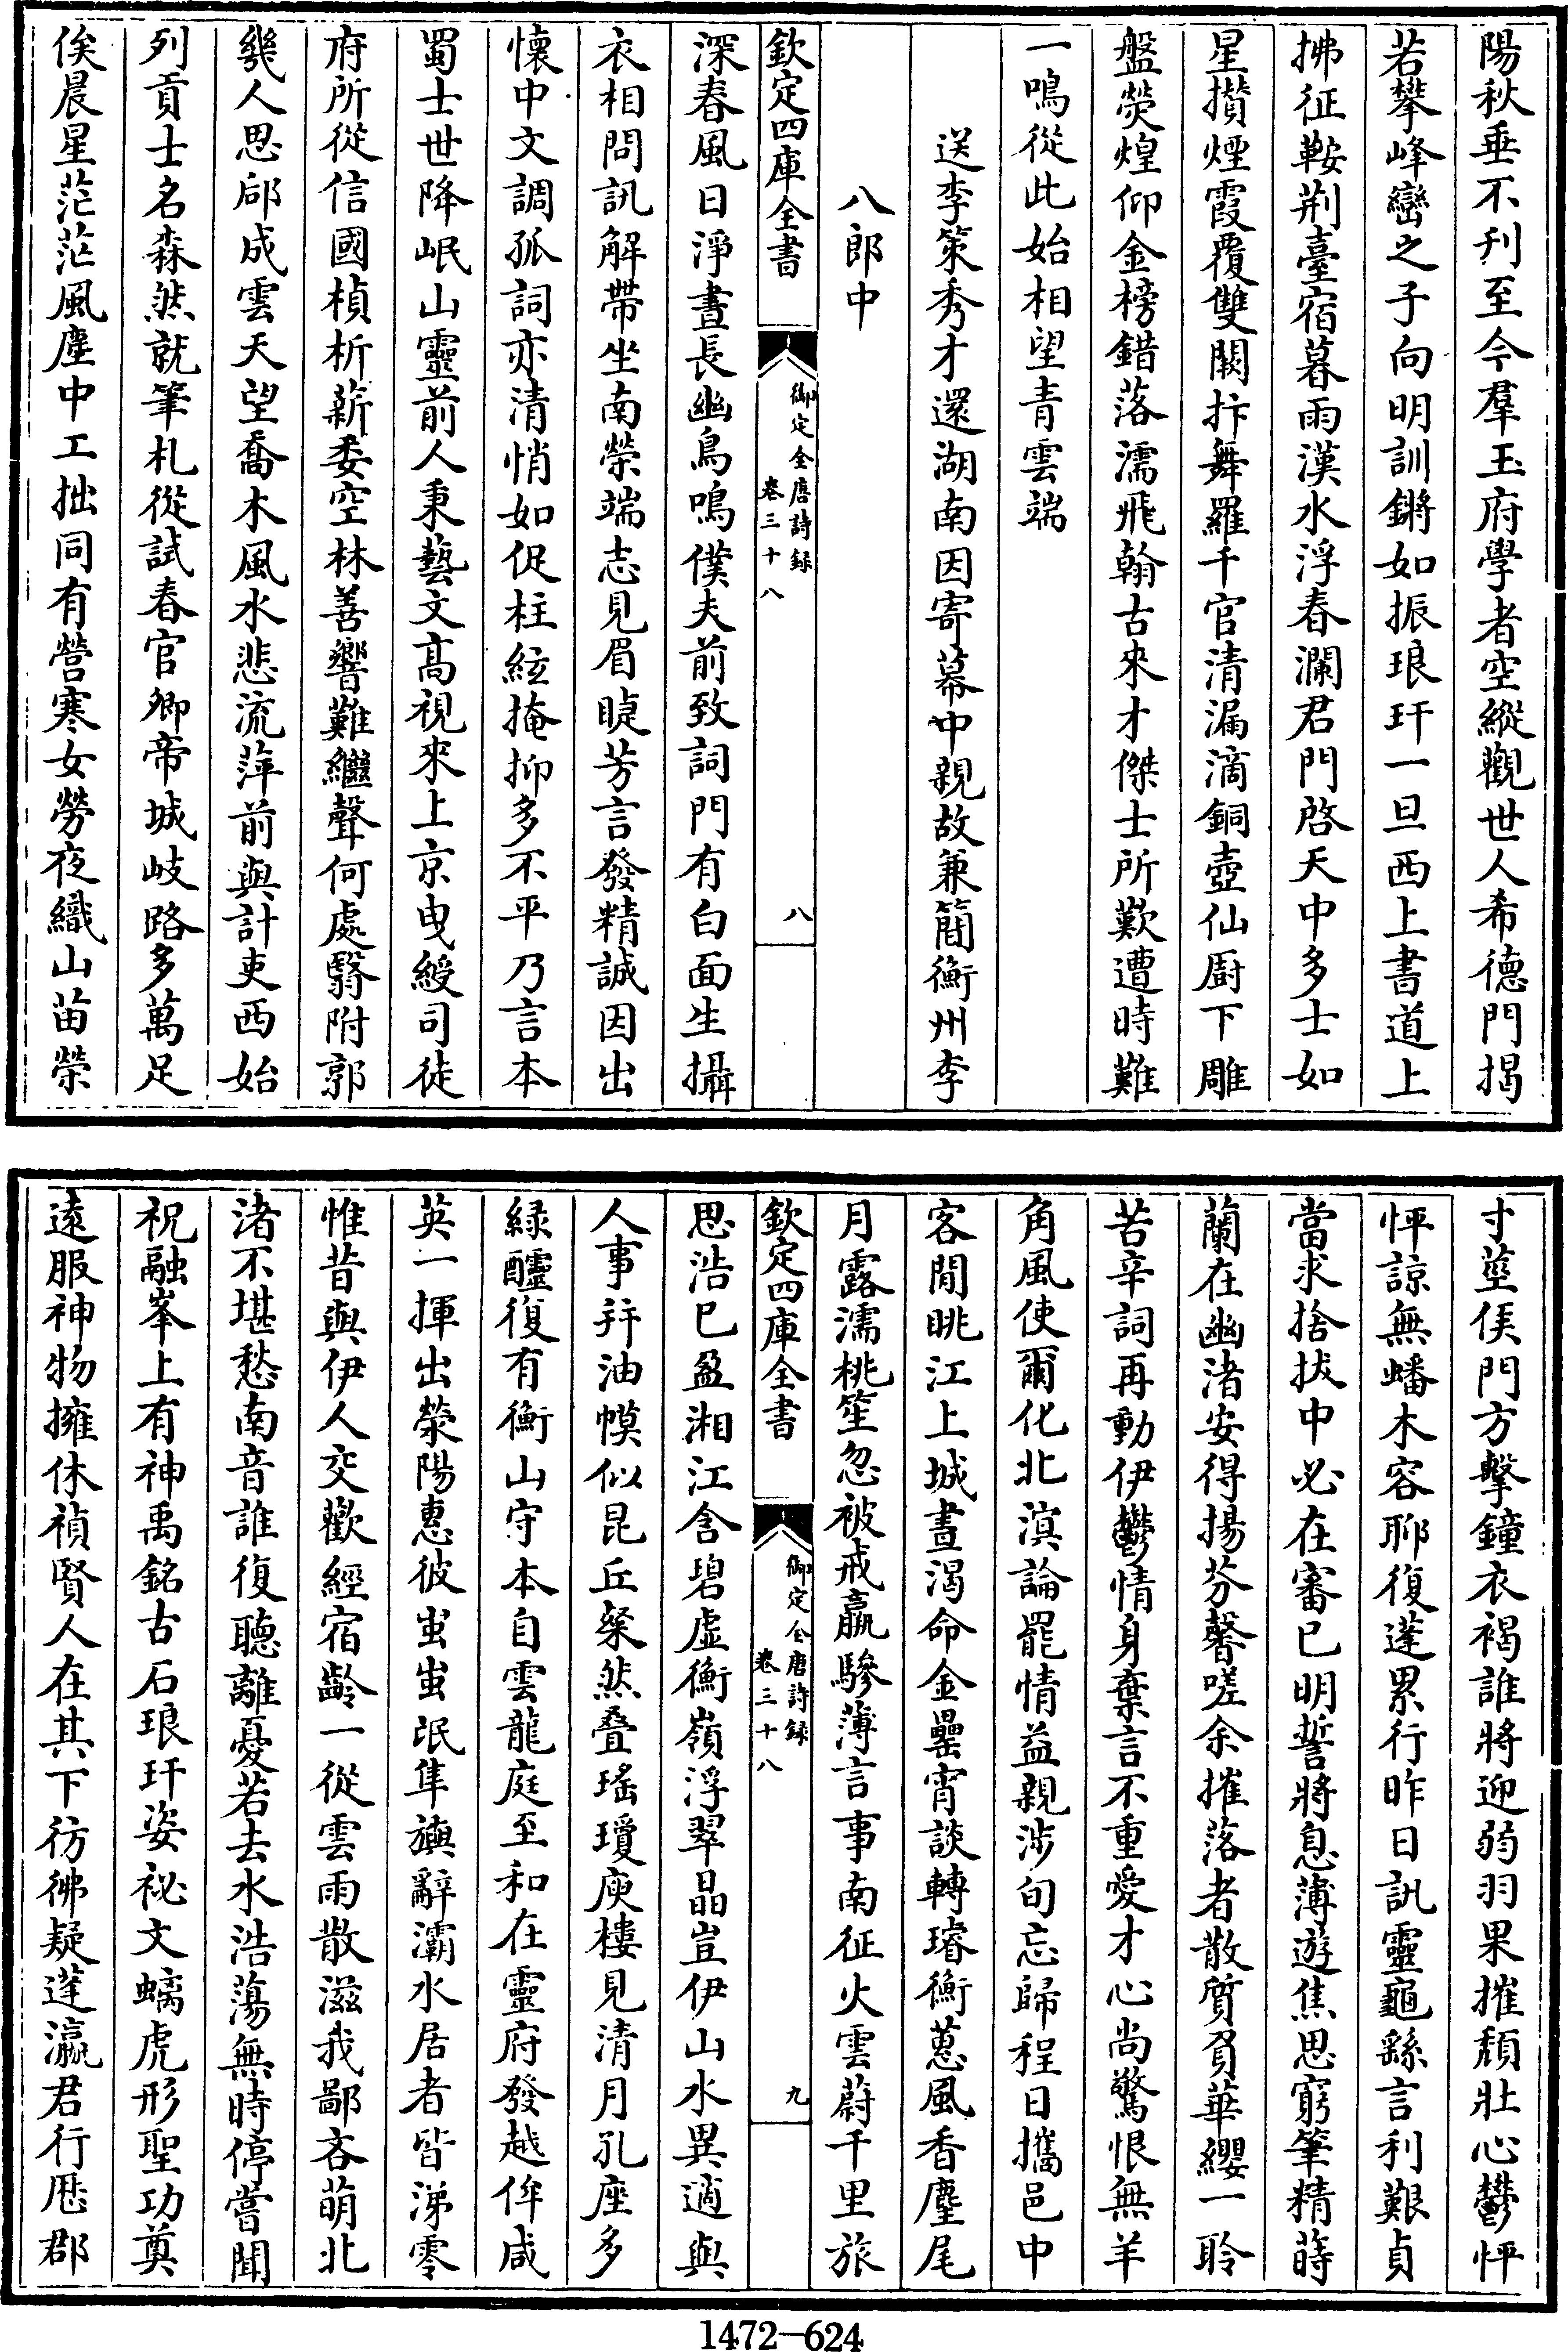 陽秋垂不刋至今羣玉府學者空縱觀世人希德門揭
若攀峰巒之子向明訓鏘如振琅玕一旦西上書道上
拂征鞍荆臺宿暮雨漢水浮春瀾君門啓天中多士如
星攅煙霞覆雙闕抃舞羅千官清漏滴銅壺仙厨下雕
盤熒煌仰金榜錯落濡飛翰古來才傑士所歎遭時難
一鳴從此始相望青雲端
送李策秀才還湖南因寄幕中親故兼簡衡州李
八郎中
欽定四庫全書
御定全唐詩録
卷三十八
八
深春風日淨晝長幽鳥鳴僕夫前致詞門有白面生攝
衣相問訊解帶坐南榮端志見眉睫芳言發精誠因出
懷中文調孤詞亦清悄如促柱絃掩抑多不平乃言本
蜀士世降岷山靈前人秉藝文髙視來上京曳綬司徒
府所從信國楨析薪委空林善響難繼聲何處翳附郭
幾人思郈成雲天望喬木風水悲流萍前與計吏西始
列貢士名森然就筆札從試春官卿帝城岐路多萬足
俟晨星茫茫風塵中工拙同有營寒女勞夜織山苗榮
寸莖侯門方擊鐘衣褐誰將迎弱羽果摧頽壯心鬱怦
怦諒無蟠木容聊復蓬累行昨日訊靈龜繇言利艱貞
當求捨拔中必在審已明誓將息薄遊焦思窮筆精蒔
蘭在幽渚安得揚芬馨嗟余摧落者散質負華纓一聆
苦辛詞再動伊鬱情身棄言不重愛才心尚驚恨無羊
角風使爾化北溟論罷情益親涉旬忘歸程日攜邑中
客閒眺江上城晝渴命金罍宵談轉璿衡蕙風香麈尾
月露濡桃笙忽被戒羸驂薄言事南征火雲蔚千里旅
欽定四庫全書
御定全唐詩録
卷三十八
九
思浩已盈湘江含碧虛衡嶺浮翠晶豈伊山水異適與
人事幷油幙似昆丘粲然叠瑤瓊庾樓見清月孔座多
緑醽復有衡山守本自雲龍庭至和在靈府發越侔咸
英一揮出滎陽惠彼蚩蚩氓隼旟辭灞水居者皆涕零
惟昔與伊人交歡經宿齡一從雲雨散滋我鄙吝萌北
渚不堪愁南音誰復聽離憂若去水浩蕩無時停嘗聞
祝融峯上有神禹銘古石琅玕姿祕文螭虎形聖功奠
遠服神物擁休禎賢人在其下彷彿疑蓬瀛君行厯郡
1472—624